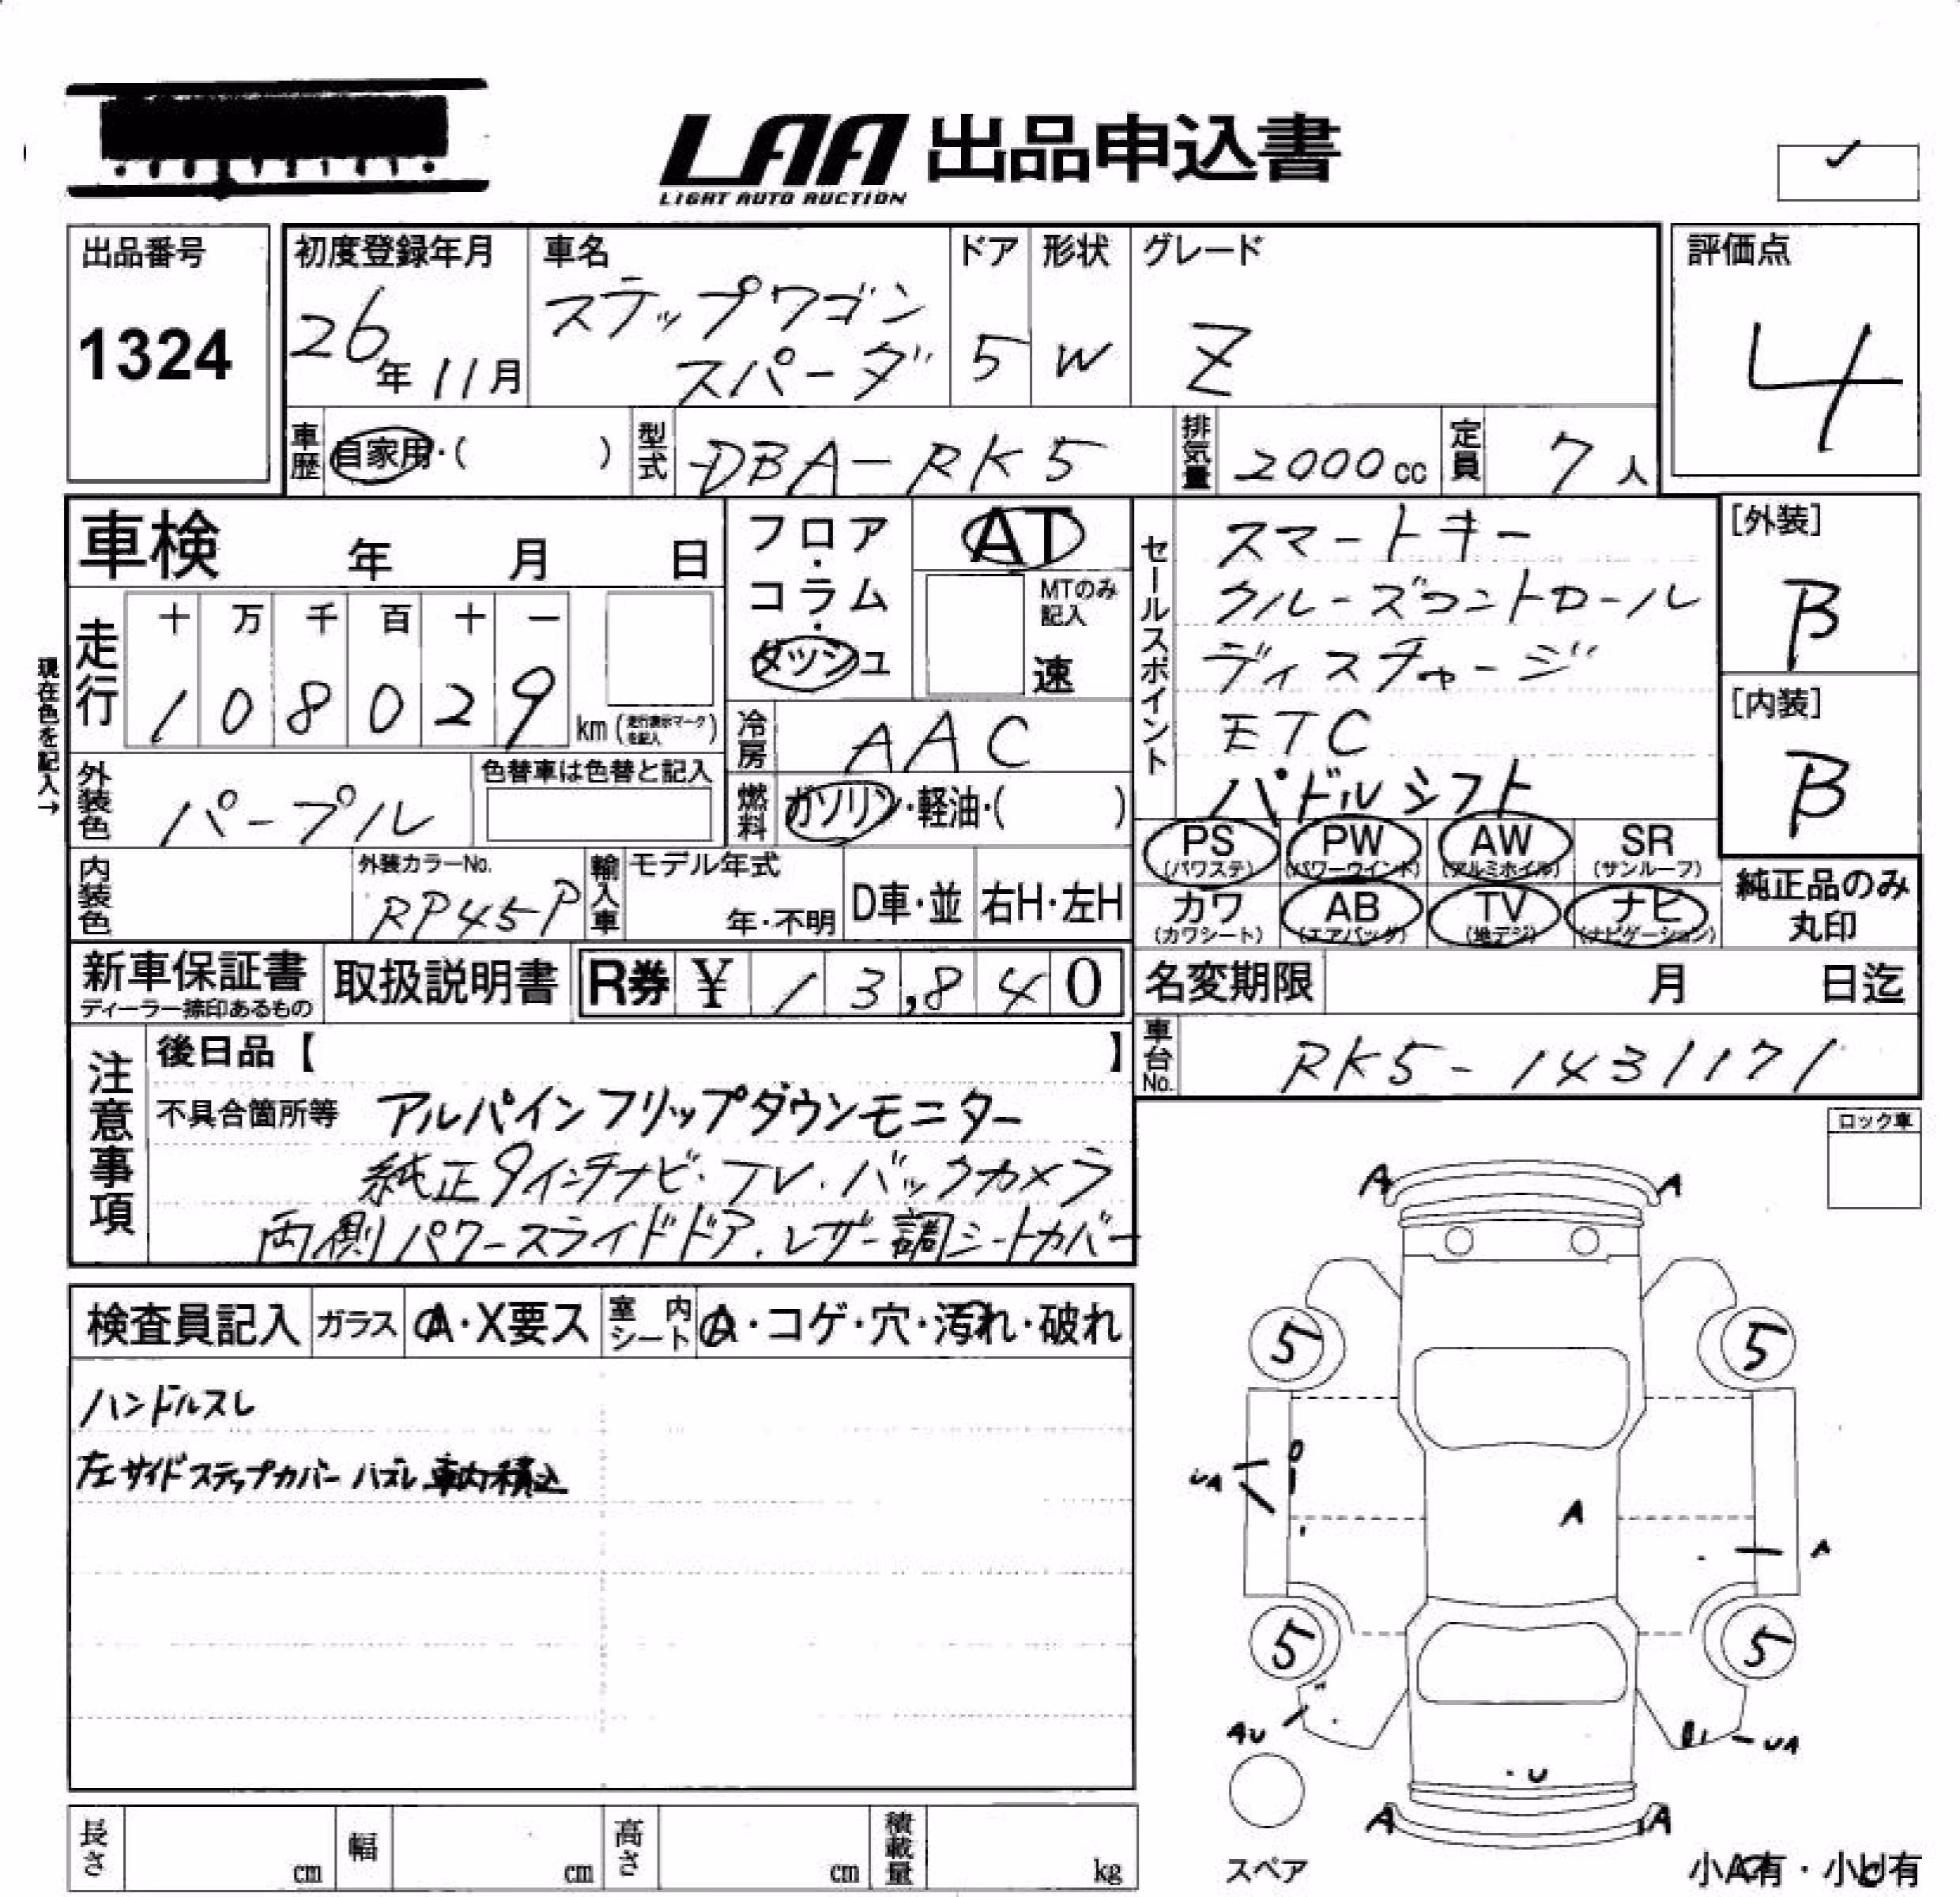 LAA 出品申込書
LIGHT AUTO AUCTION
出品番号
1324
初度登録年月
26年11月
車名
ステップワゴン
スパーダ
ドア
5
形状
W
グレード
Z
評価点
4
車歴 自家用・( )
型式 DBA-RK5
排気量 2000cc
定員 7人
車検 年 月 日
フロア・コラム・ダッシュ
AT
MTのみ記入
速
現在色を記入→
走行
十 万 千 百 十 一
1 0 8 0 2 9
km (走行表示マークを記入)
冷房 AAC
外装色 パープル
色替車は色替と記入
燃料 ガソリン・軽油・( )
内装色
外装カラーNo.
RP45P
輸入車
モデル年式
年・不明
D車・並
右H・左H
セールスポイント
スマートキー
クルーズコントロール
ディスチャージ
ETC
パドルシフト
[外装]
B
[内装]
B
PS (パワステ)
PW (パワーウインド)
AW (アルミホイル)
SR (サンルーフ)
カワ (カワシート)
AB (エアバッグ)
TV (地デジ)
ナビ (ナビゲーション)
純正品のみ
丸印
新車保証書
ディーラー捺印あるもの
取扱説明書
R券 ¥ 13,840
名変期限 月 日迄
車台No. RK5-1431171
注意事項
後日品【 】
不具合箇所等 アルパインフリップダウンモニター
純正9インチナビ・TV・バックカメラ
両側パワースライドドア、レザー調シートカバー
ロック車
検査員記入
ガラス A・X要ス
室内シート A・コゲ・穴・汚れ・破れ
ハンドルスレ
左サイドステップカバー ハズレ 車内積込
A A
5 5
UA
A
A
5 5
AU
UA
U
A A
スペア
小A有・小U有
長さ cm
幅 cm
高さ cm
積載量 kg